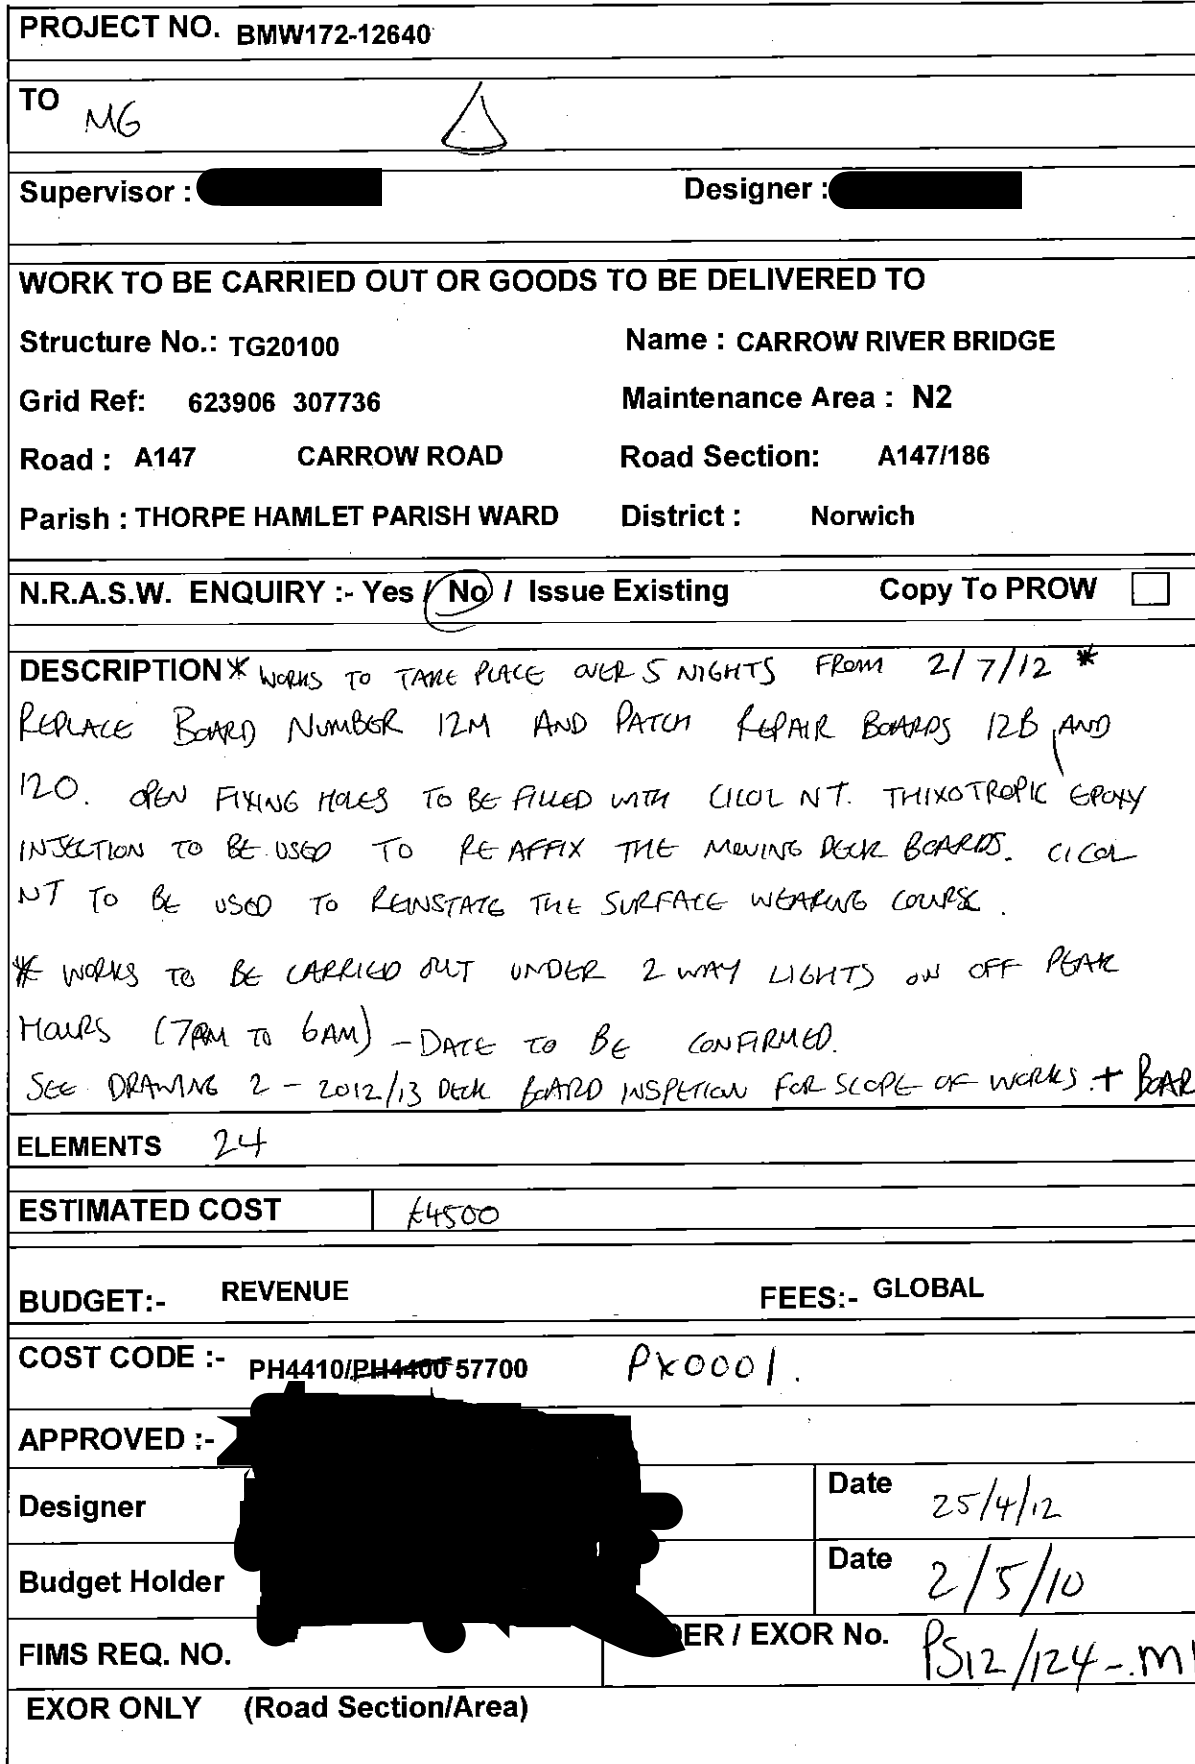 PROJECT NO. BMW172-12640
TO MG
Supervisor : Designer :
WORK TO BE CARRIED OUT OR GOODS TO BE DELIVERED TO
Structure No.: TG20100 Name : CARROW RIVER BRIDGE
Grid Ref: 623906 307736 Maintenance Area : N2
Road : A147 CARROW ROAD Road Section: A147/186
Parish : THORPE HAMLET PARISH WARD District : Norwich
N.R.A.S.W. ENQUIRY :- Yes / No / Issue Existing Copy To PROW
DESCRIPTION * WORKS TO TAKE PLACE OVER 5 NIGHTS FROM 2/7/12 *
REPLACE BOARD NUMBER 12M AND PATCH REPAIR BOARDS 12B AND
120. OPEN FIXING HOLES TO BE FILLED WITH CICOL NT. THIXOTROPIC EPOXY
INJECTION TO BE USED TO RE AFFIX THE MOVING DECK BOARDS. CICOL
NT TO BE USED TO REINSTATE THE SURFACE WEARING COURSE.
* WORKS TO BE CARRIED OUT UNDER 2 WAY LIGHTS ON OFF PEAK
HOURS (7PM TO 6AM) - DATE TO BE CONFIRMED.
SEE DRAWING 2 - 2012/13 DECK BOARD INSPETION FOR SCOPE OF WORKS + BOAR
ELEMENTS 24
ESTIMATED COST £4500
BUDGET:- REVENUE FEES:- GLOBAL
COST CODE :- PH4410/PH4400 57700 PX0001.
APPROVED :-
Designer Date 25/4/12
Budget Holder Date 2/5/10
FIMS REQ. NO. ER / EXOR No. PS12/124-.M
EXOR ONLY (Road Section/Area)